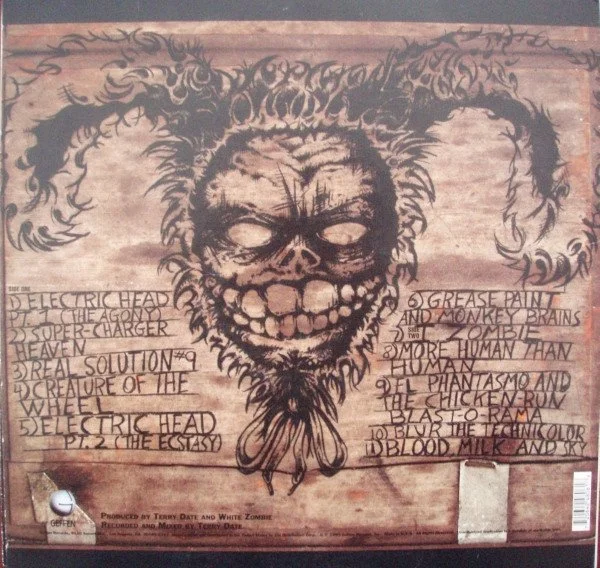 SIDE ONE
1) ELECTRIC HEAD
PT. 1 (THE AGONY)
2) SUPER-CHARGER
HEAVEN
3) REAL SOLUTION #9
4) CREATURE OF THE
WHEEL
5) ELECTRIC HEAD
PT. 2 (THE ECSTASY)
6) GREASE PAINT
AND MONKEY BRAINS
SIDE TWO
7) I, ZOMBIE
8) MORE HUMAN THAN
HUMAN
9) EL PHANTASMO AND
THE CHICKEN-RUN
BLAST-O-RAMA
10) BLUR THE TECHNICOLOR
11) BLOOD, MILK AND SKY
GEFFEN
PRODUCED BY TERRY DATE AND WHITE ZOMBIE
RECORDED AND MIXED BY TERRY DATE